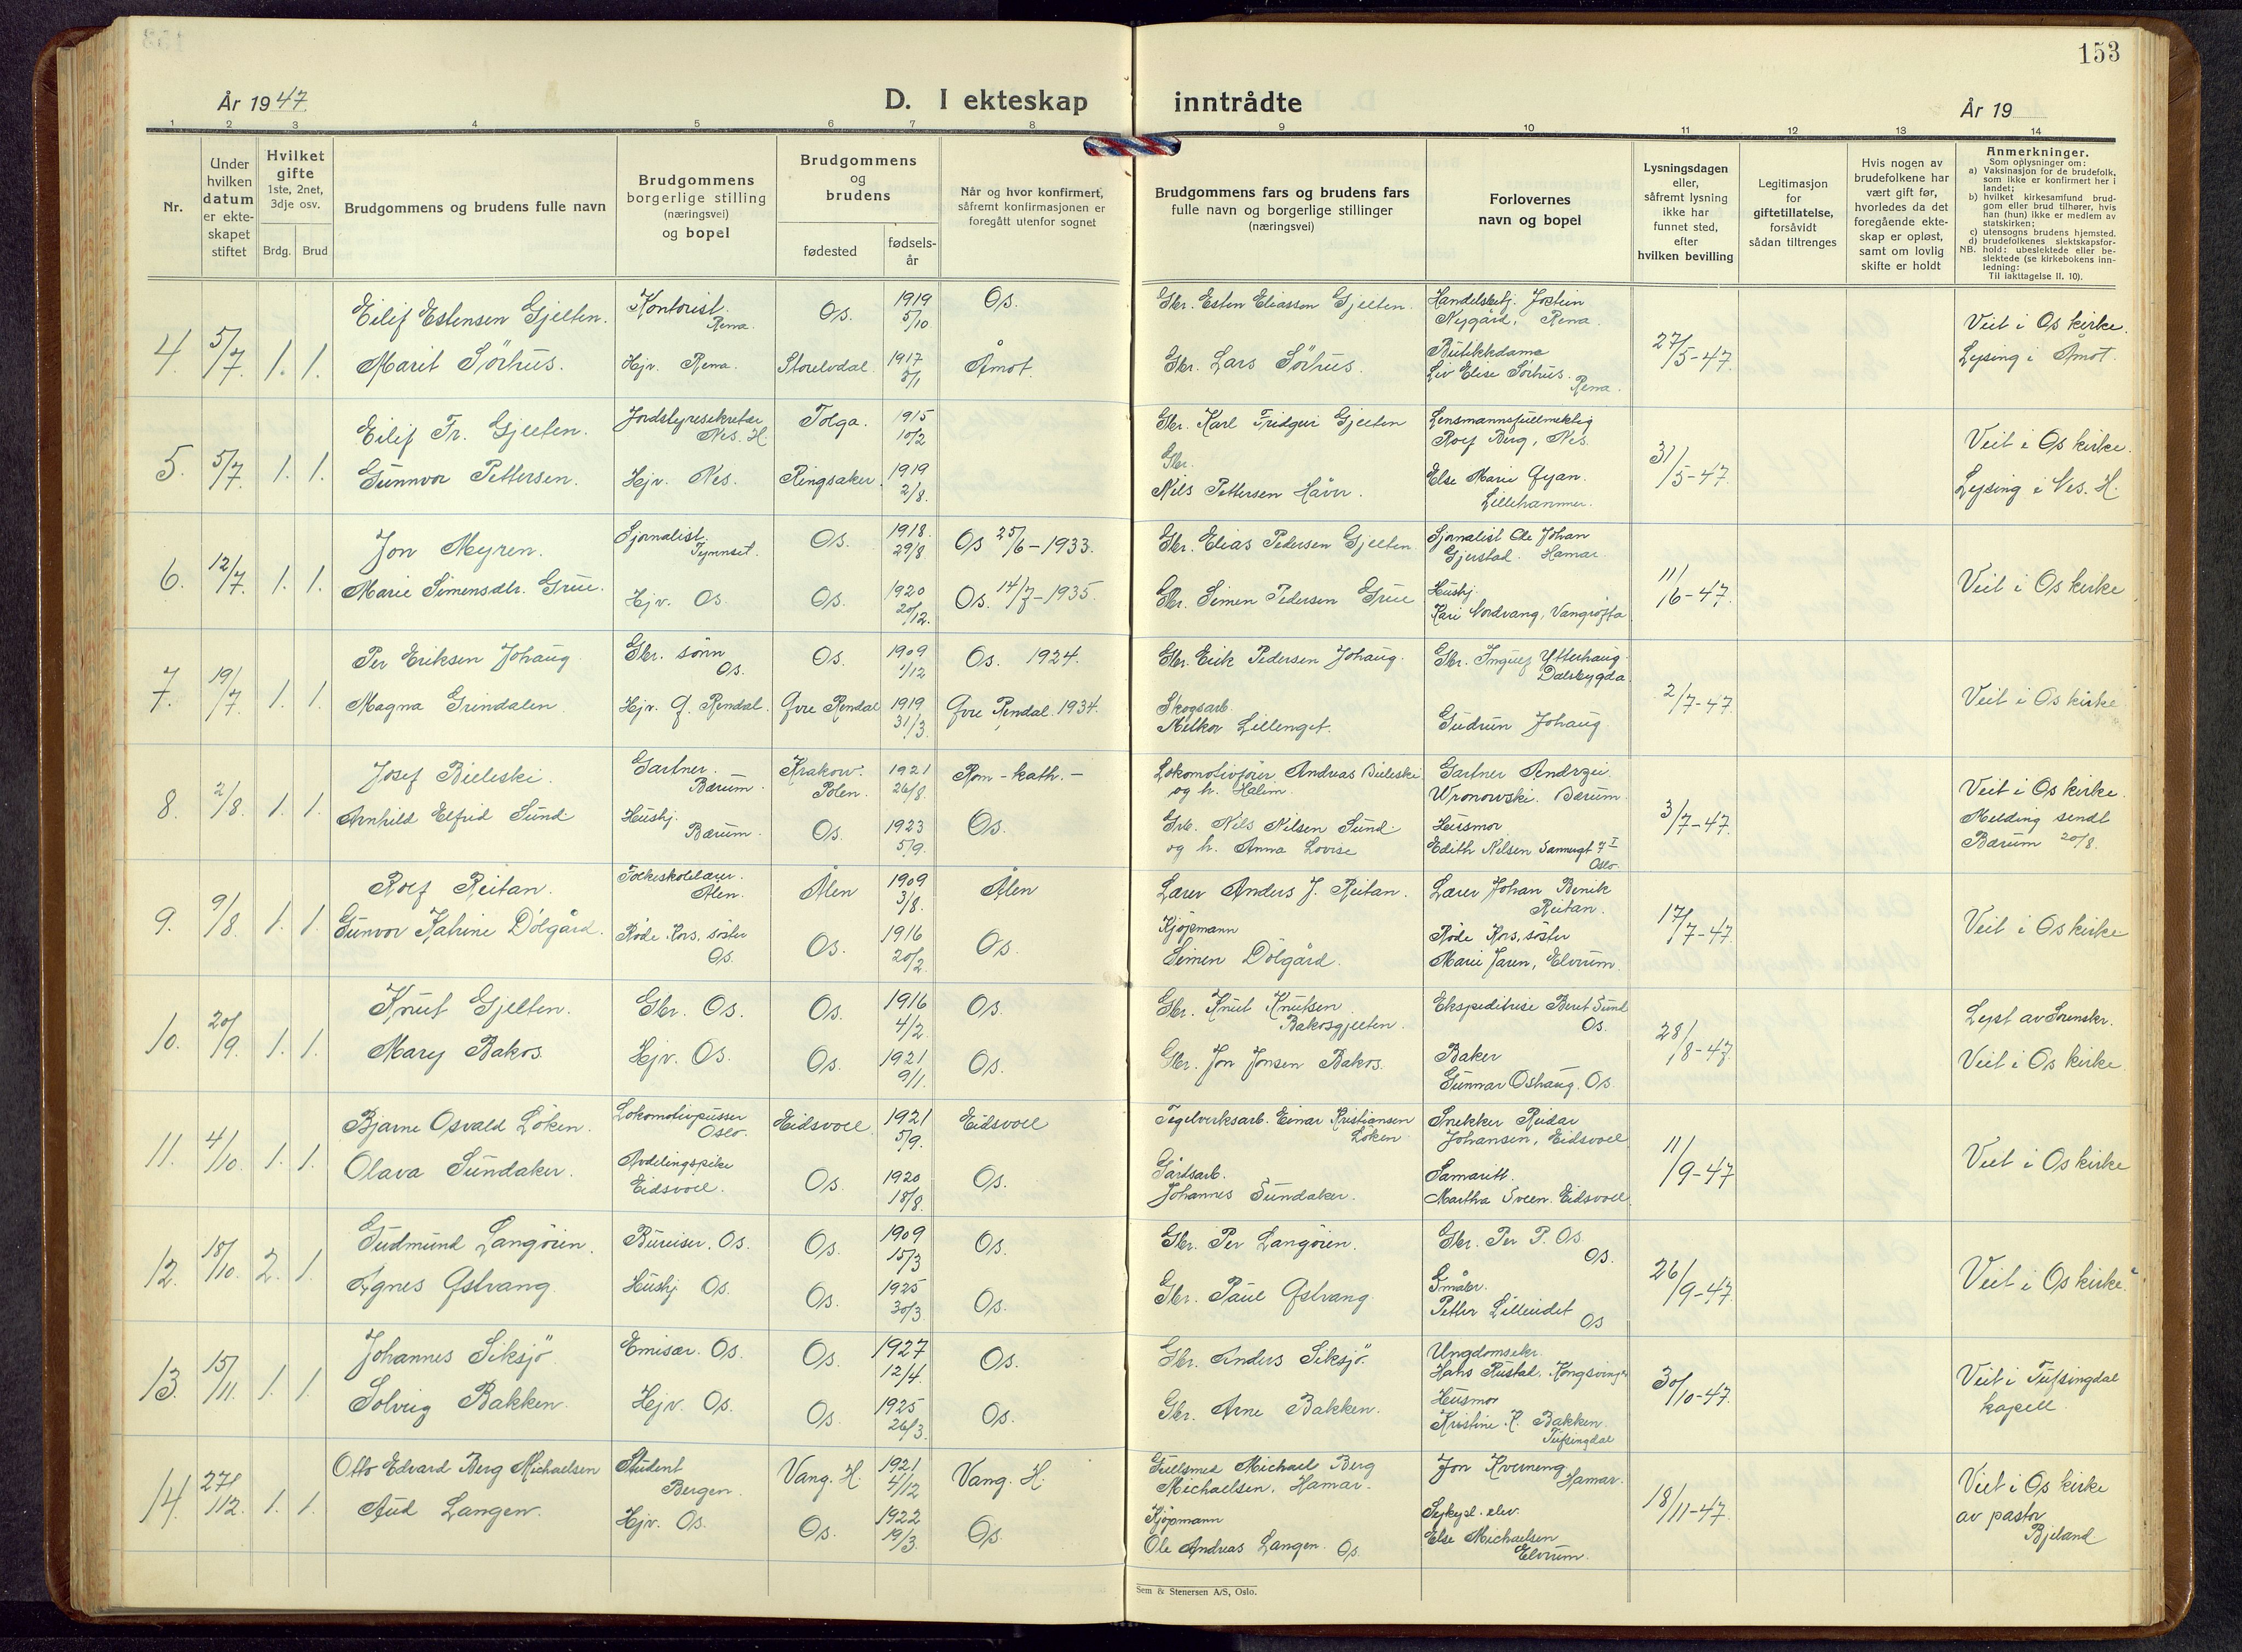 153
År 1947.
D. I ekteskap
inntrådte
År 19
1 2 3 4 5 6 7 8 9 10 11 12 13 14
Nr.
Under
hvilken
datum
er ekte-
skapet
stiftet
Hvilket
gifte
1ste, 2net,
3dje osv.
Brdg. Brud
Brudgommens og brudens fulle navn
Brudgommens
borgerlige stilling
(næringsvei)
og bopel
Brudgommens
og
brudens
fødested
fødsels-
år
Når og hvor konfirmert,
såfremt konfirmasjonen er
foregått utenfor sognet
Brudgommens fars og brudens fars
fulle navn og borgerlige stillinger
(næringsvei)
Forlovernes
navn og bopel
Lysningsdagen
eller,
såfremt lysning
ikke har
funnet sted,
efter
hvilken bevilling
Legitimasjon
for
giftetillatelse,
forsåvidt
sådan tiltrenges
Hvis nogen av
brudefolkene har
vært gift før,
hvorledes da det
foregående ekte-
skap er opløst,
samt om lovlig
skifte er holdt
Anmerkninger.
Som oplysninger om:
a) Vaksinasjon for de brudefolk,
som ikke er konfirmert her i
landet;
b) hvilket kirkesamfund brud-
gom eller brud tilhører, hvis
han (hun) ikke er medlem av
statskirken;
c) utensogns brudens hjemsted.
d) brudefolkenes slektskapsfor-
NB. hold: ubeslektede eller be-
slektede (se kirkebokens inn-
ledning:
Til iakttagelse II. 10).
4. 5/7. 1. 1.
Eilif Estensen Gjelten.
Kontorist. Rena.
Os.
1919 5/10
Os.
Gbr. Esten Eliassen Gjelten.
Handelsbetj. Jostein
Nygård, Rena.
27/5-47.
Veit i Os kirke.
Marit Sörhus.
Hjv. Rena.
Storelvdal.
1917 5/1
Åmot.
Gbr. Lars Sörhus.
Butikkdame
Liv Elise Sörhus. Rena.
Lysing i Åmot.
5. 5/7. 1. 1.
Eilif Fr. Gjelten.
Jordstyresekretær
Nes. H.
Tolga.
1915 10/2
Gbr. Karl Fridgeir Gjelten
Lensmannsfullmektig
Rolf Berg, Nes.
31/5-47.
Veit i Os kirke.
Gunnvor Pettersen.
Hjv. Nes.
Ringsaker.
1919 2/8.
Gbr.
Nils Pettersen Håver.
Else Marie Øyan.
Lillehammer.
Lysing i Nes. H.
6. 12/7. 1. 1.
Jon Myren.
Sjornalist. Tynnset.
Os.
1918. 29/8
Os 25/6-1933.
Gbr. Elias Pedersen Gjelten.
Sjornalist Ole Johan
Gjerstad. Hamar.
11/6-47.
Veit i Os kirke
Marie Simensdtr. Grue.
Hjv. Os.
Os.
1920 20/12.
Os. 14/7-1935.
Gbr. Simen Pedersen Grue
Hushj.
Kari Nordvang, Vangröfta
7. 19/7. 1. 1.
Per Eriksen Johaug
Gbr. sönn Os.
Os.
1909 1/12
Os. 1924.
Gbr. Erik Pedersen Johaug.
Gbr. Ingulf Ytterhaug.
Dalsbygda.
2/7-47.
Veit i Os kirke
Magna Grindalen.
Hjv. Ø. Rendal.
Øvre Rendal
1919 31/3.
Øvre Rendal. 1934.
Skogsarb.
Melkor Lillenget.
Gudrun Johaug
8. 2/8. 1. 1.
Josef Bieleski.
Gartner. Bærum.
Krakow. Polen.
1921 26/8.
Rom-kath.-
Lokomotivförer Andreas Bieleski
og h. Halim.
Gartner Andrzei.
Wronowski. Bærum.
3/7-47.
Veit i Os kirke.
Melding sendt
Bærum 20/8.
Arnhild Elfrid Sund
Hushj. Bærum.
Os.
1923 5/9.
Os.
Grb. Nils Nilsen Sund
og h. Anna Lovise
Husmor
Edith Nilsen Sannergt 7 I
Oslo.
9. 9/8. 1. 1.
Rolf Reitan.
Folkeskolelærer. Ålen.
Ålen
1909 3/8.
Ålen
Lærer Anders J. Reitan.
Lærer Johan Benik
Reitan.
17/7-47.
Veit i Os kirke
Gunvor Katrine Dölgård.
Röde Kors, söster Os.
Os.
1916 20/2.
Os.
Kjöpmann
Simen Dölgård.
Röde Kors, söster
Marie Jaren, Elverum.
10. 20/9. 1. 1.
Knut Gjelten.
Gbr. Os.
Os.
1916 4/2.
Os.
Gbr. Knut Knutsen
Bakosgjelten.
Ekspeditrise Berit Sund
Os.
28/8-47
Lyst av Sorenskr.
Mary Bakos.
Hjv. Os.
Os.
1921 9/1.
Os.
Gbr. Jon Jonsen Bakos.
Baker
Gunnar Oshaug. Os.
Veit i Os kirke.
11. 4/10. 1. 1.
Bjarne Osvald Löken.
Lokomotivpusser Oslo.
Eidsvoll.
1921 5/9.
Eidsvoll
Tegelverksarb. Einar Kristiansen
Löken
Snekker Reidar
Johansen, Eidsvoll
11/9-47
Veit i Os kirke
Olava Sundaker.
Avdelingspike
Eidsvoll.
Os.
1920 18/8.
Os.
Gårdsarb.
Johannes Sundaker.
Samaritt.
Martha Sveen. Eidsvoll
12. 18/10. 2. 1.
Gudmund Langöien.
Bureiser. Os.
Os.
1909 15/3
Os.
Gbr. Per Langöien.
Gbr. Per P. Os.
Os.
26/9-47.
Veit i Os kirke.
Agnes Østvang
Hushj. Os.
Os.
1925 30/3.
Os.
Gbr. Paul Østvang
Småbr.
Petter Lilleeidet
Os
13. 15/11. 1. 1.
Johannes Siksjö.
Emisær. Os.
Os.
1927 12/4.
Os.
Gbr. Anders Siksjö.
Ungdomsekr.
Hans Rustad, Kongsvinger
30/10-47.
Veit i Tufsingdal
kapell.
Solveig Bakken.
Hjv. Os.
Os.
1925 26/3.
Os.
Gbr. Arne Bakken.
Husmor
Kristine K. Bakken.
Tufsingdal
14. 27/12. 1. 1.
Otto Edvard Berg Michaelsen
Student
Bergen.
Vang. H.
1921 4/12
Vang. H.
Gullsmed Michael Berg
Michaelsen, Hamar.
Jon Kverneng
Hamar.
18/11-47.
Veit i Os kirke
av pastor
Bjeland
Aud Langen.
Hjv. Os.
Os.
1922 19/3.
Os.
Kjöpmann
Ole Andreas Langen. Os.
Sykepl. elev.
Else Michaelsen
Elverum.
Sem & Stenersen A/S, Oslo.